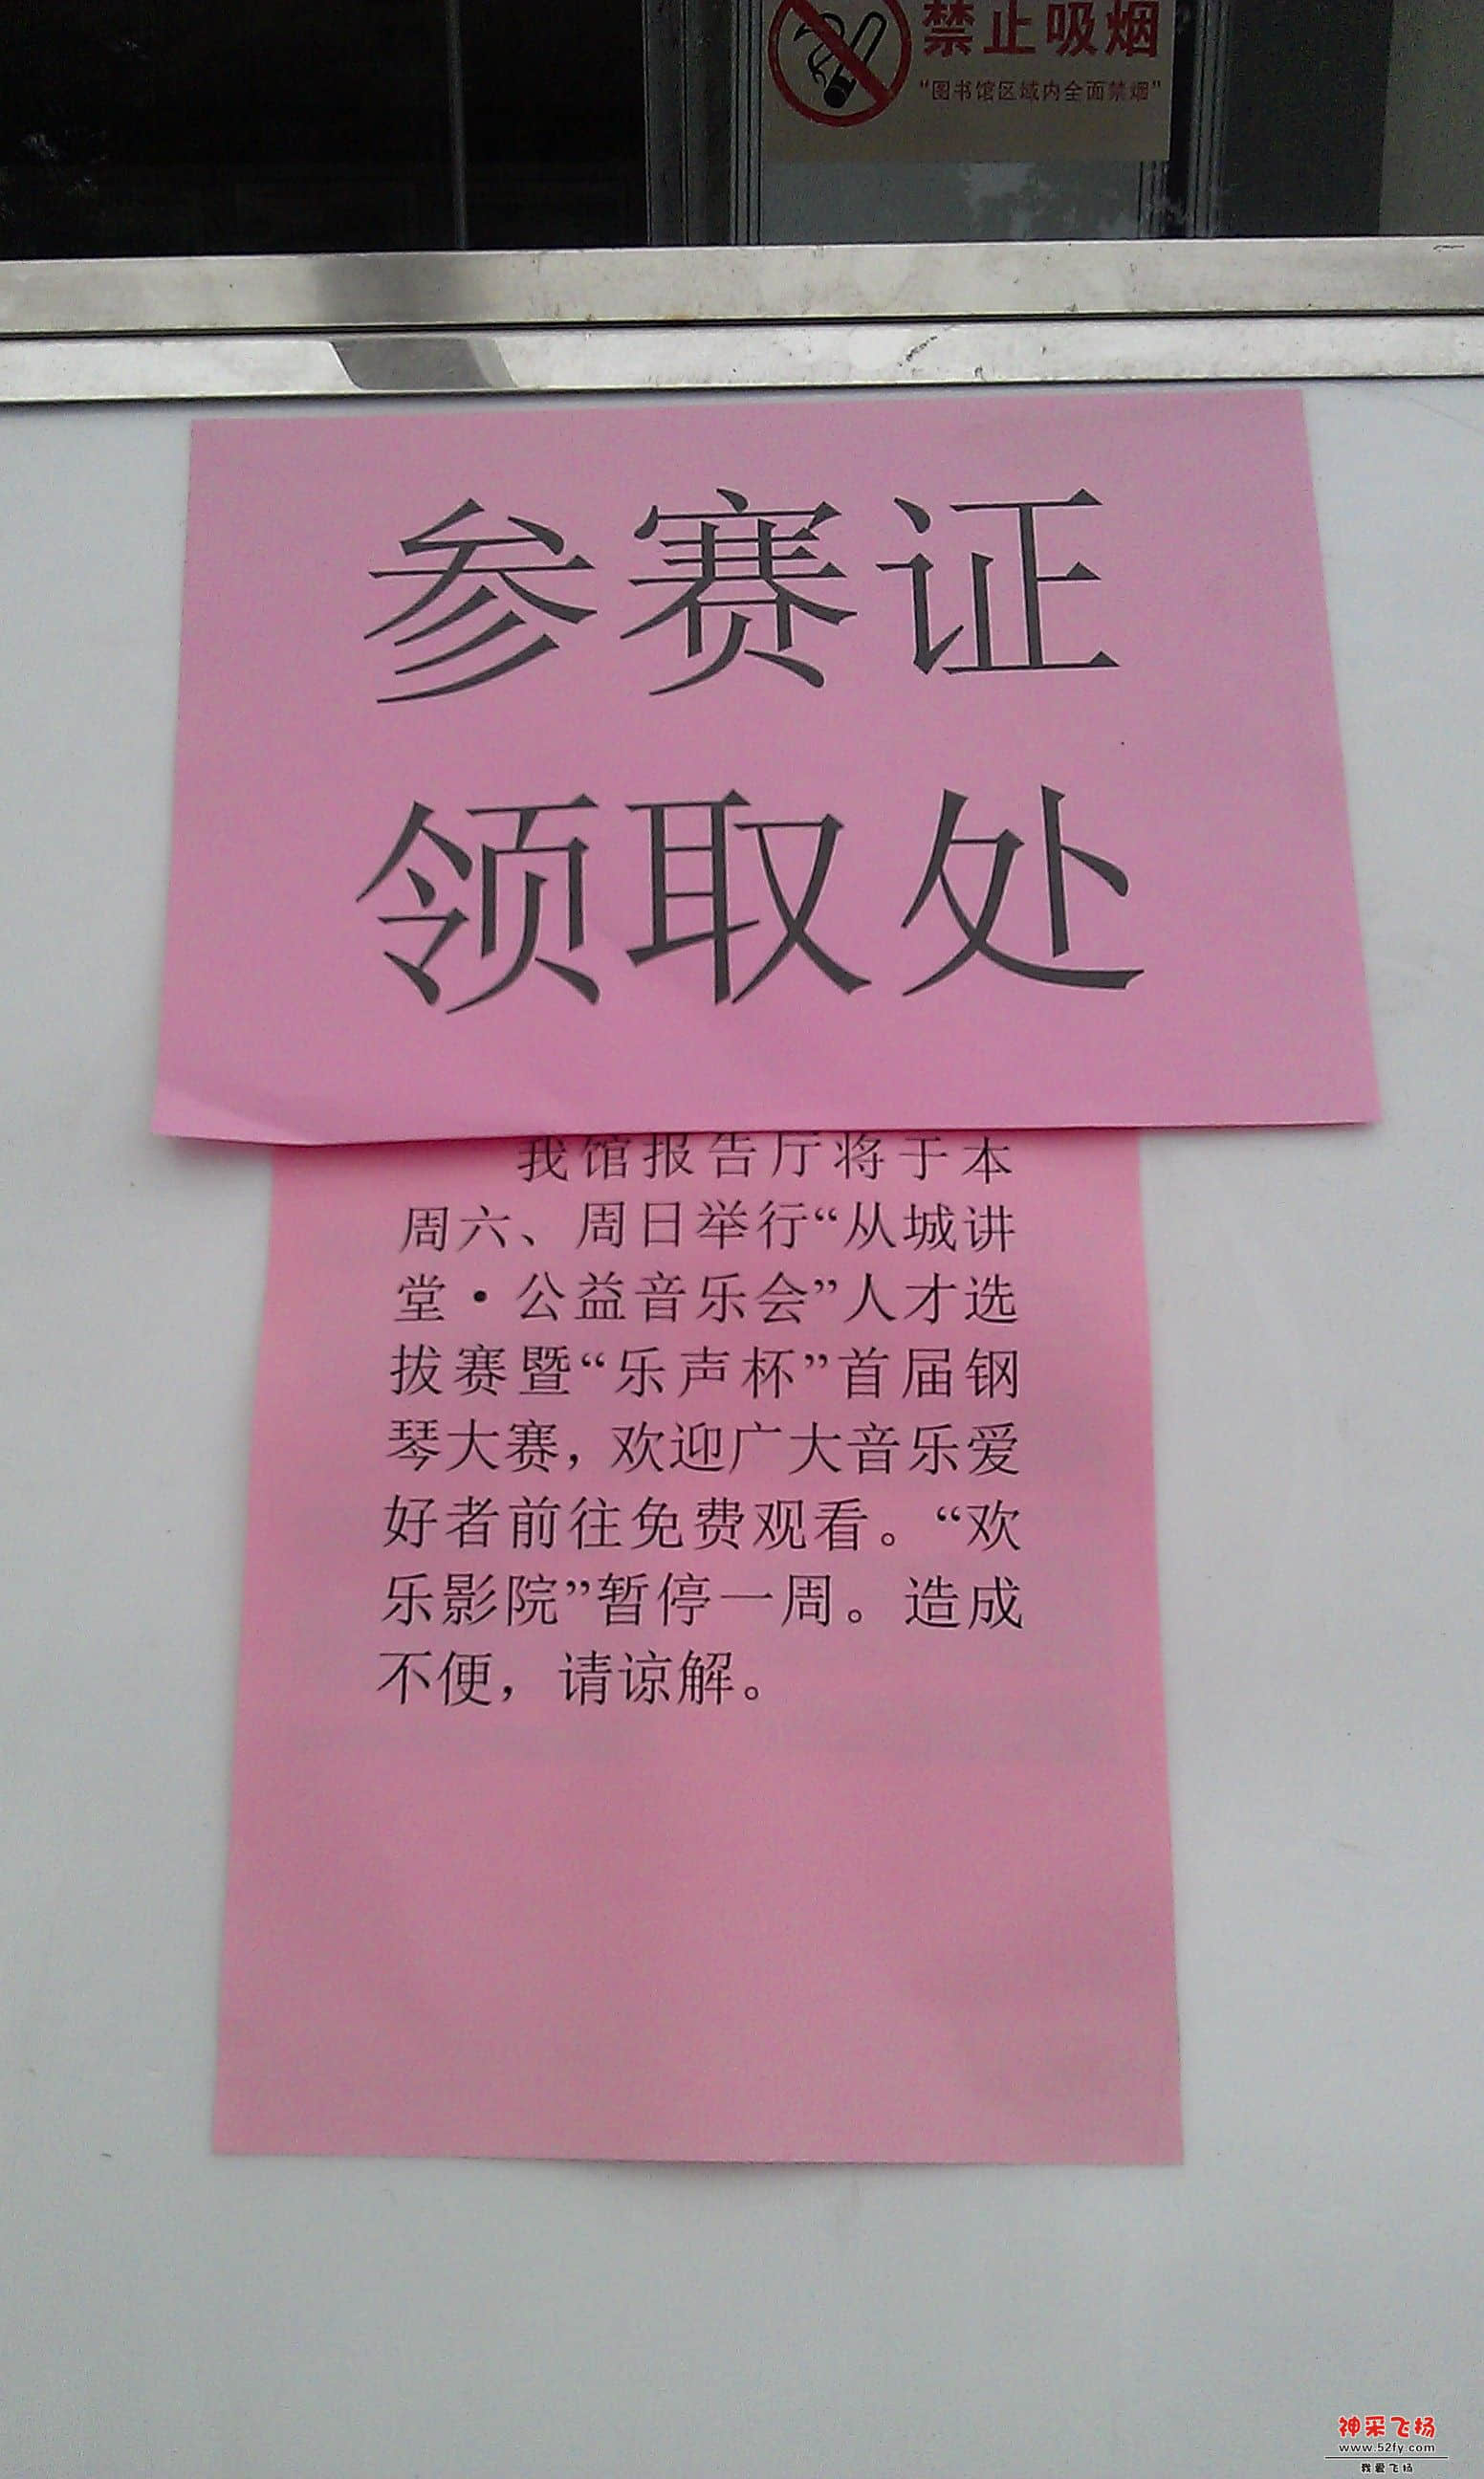 禁止吸烟
“图书馆区域内全面禁烟”
参赛证
领取处
我馆报告厅将于本
周六、周日举行“从城讲
堂·公益音乐会”人才选
拔赛暨“乐声杯”首届钢
琴大赛，欢迎广大音乐爱
好者前往免费观看。“欢
乐影院”暂停一周。造成
不便，请谅解。
神采飞扬
www.52fy.com
我爱飞扬